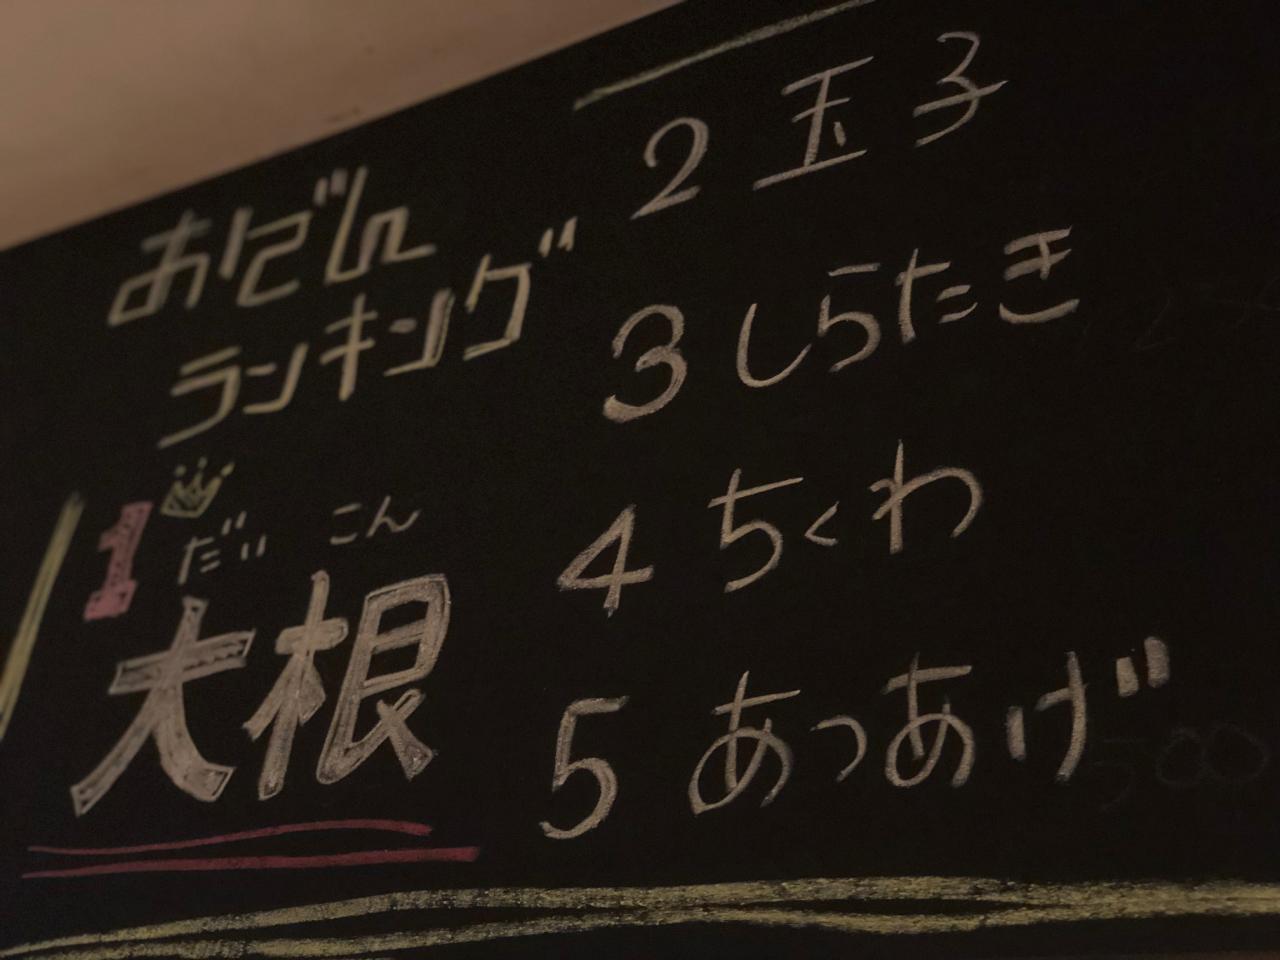 おでん
ランキング
1
だい こん
大根
2 玉子
3 しらたき
4 ちくわ
5 あつあげ